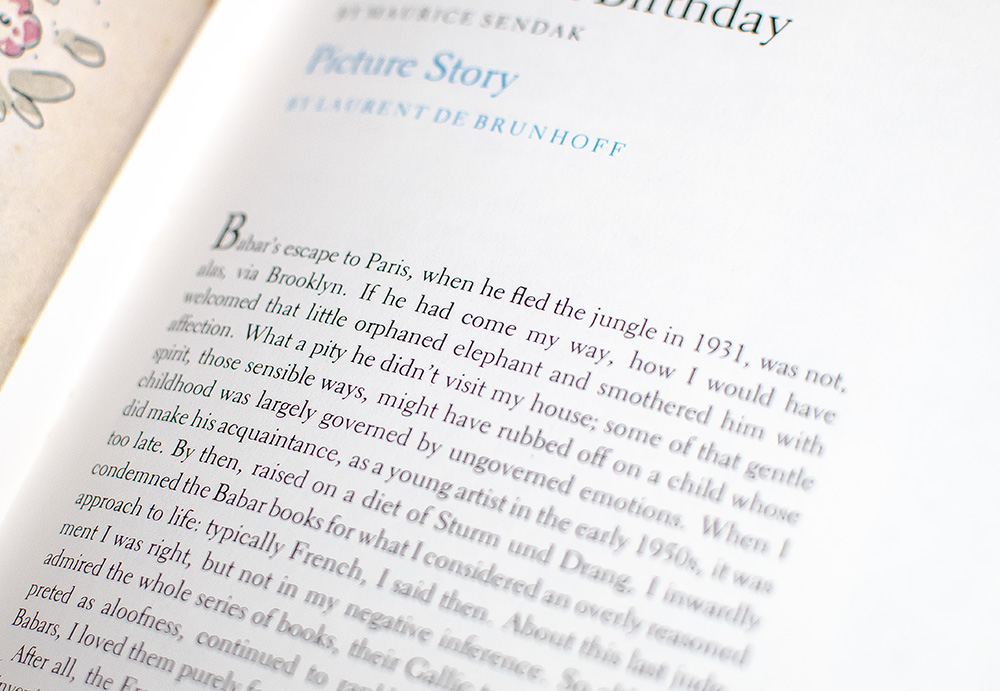 Birthday
BY MAURICE SENDAK
Picture Story
BY LAURENT DE BRUNHOFF
Babar's escape to Paris, when he fled the jungle in 1931, was not,
alas, via Brooklyn. If he had come my way, how I would have
welcomed that little orphaned elephant and smothered him with
affection. What a pity he didn't visit my house; some of that gentle
spirit, those sensible ways, might have rubbed off on a child whose
childhood was largely governed by ungoverned emotions. When I
did make his acquaintance, as a young artist in the early 1950s, it was
too late. By then, raised on a diet of Sturm und Drang, I inwardly
condemned the Babar books for what I considered an overly reasoned
approach to life: typically French, I said then. About this last judg-
ment I was right, but not in my negative inference. So
admired the whole series of books, their Gallic
preted as aloofness, continued to
Babars, I loved them purely
After all, the